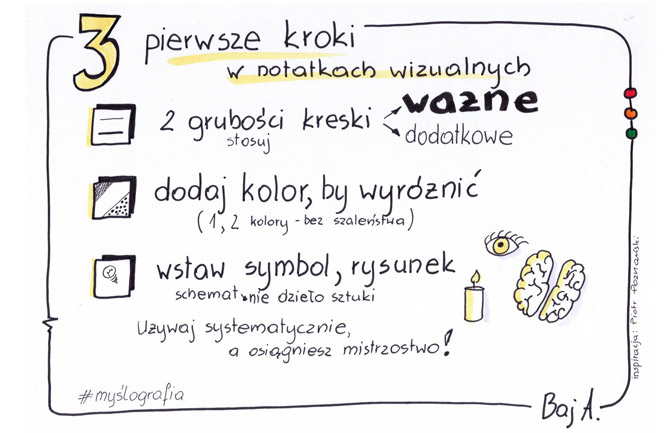 3 pierwsze kroki
w notatkach wizualnych
2 grubości kreski
stosuj
ważne
dodatkowe
dodaj kolor, by wyróżnić
(1, 2 kolory - bez szaleństwa)
wstaw symbol, rysunek
schemat, nie dzieło sztuki
Używaj systematycznie,
a osiągniesz mistrzostwo!
#myślografia
Baj A.
inspiracja: Piotr Poznański